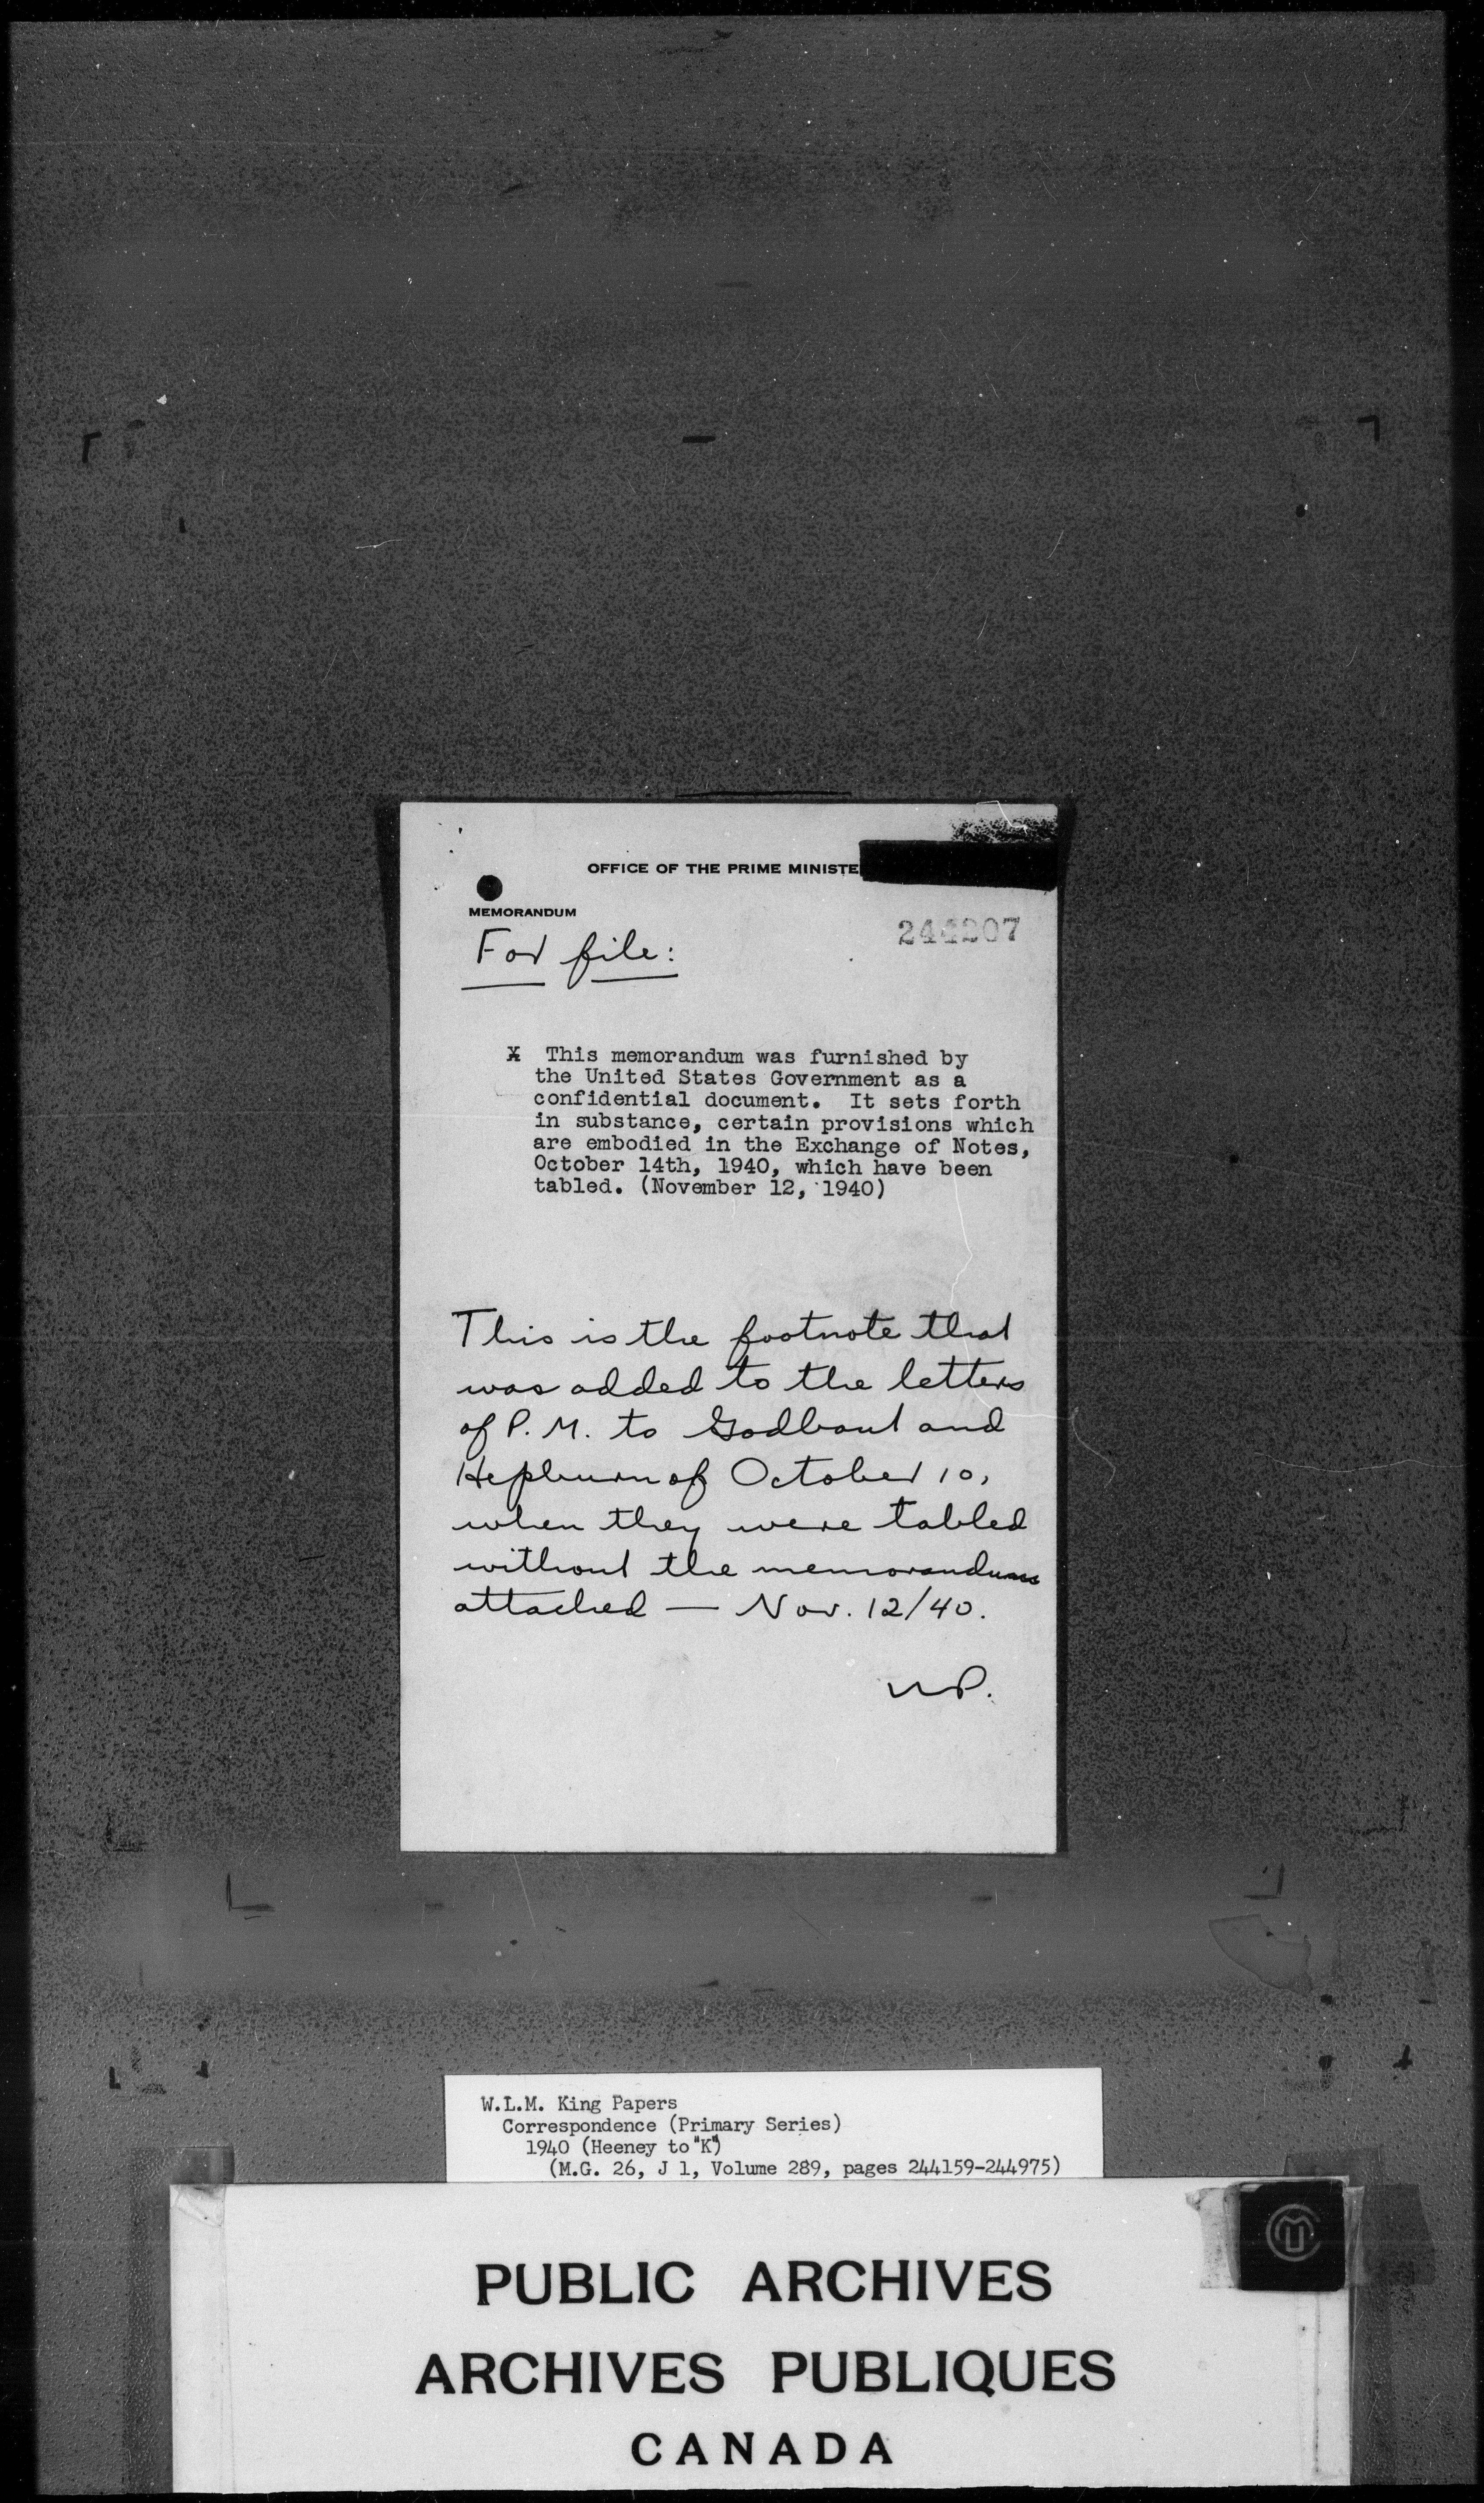 OFFICE OF THE PRIME MINISTE
MEMORANDUM
244207
For file:
X This memorandum was furnished by
the United States Government as a
confidential document. It sets forth
in substance, certain provisions which
are embodied in the Exchange of Notes,
October 14th, 1940, which have been
tabled. (November 12, 1940)
This is the footnote that
was added to the letters
of P.M. to Godbout and
Hepburn of October 10,
when they were tabled
without the memorandum
attached — Nov. 12/40.
W.L.M. King Papers
Correspondence (Primary Series)
1940 (Heeney to "K")
(M.G. 26, J 1, Volume 289, pages 244159-244975)
PUBLIC ARCHIVES
ARCHIVES PUBLIQUES
CANADA